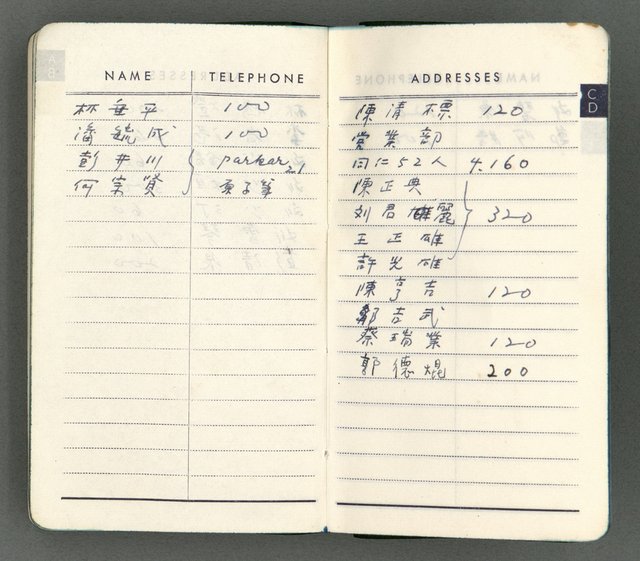 NAME TELEPHONE
林垂平 100
潘毓成 100
彭井川 parker
何宗賢 原子筆
ADDRESSES
C
D
陳清標 120
営業部
同仁52人 4.160
陳正典
刘君雄麗 320
王正雄
許光雄
陳亨吉 120
鄒吉武
蔡瑞業 120
郭德焜 200